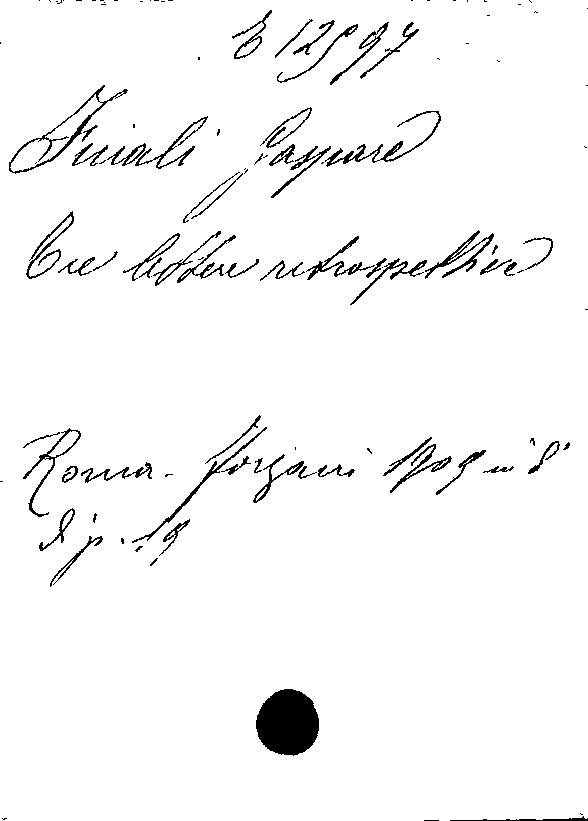 E 12997
Finali Gaspare
Tre lettere retrospettive
Roma - Forzani 1909 in 8°
di p. 19